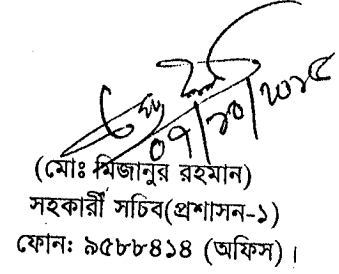 ০৭/১০/২০১৫
(মোঃ মিজানুর রহমান)
সহকারী সচিব(প্রশাসন-১)
ফোন: ৯৫৮৮৪১৪ (অফিস)।